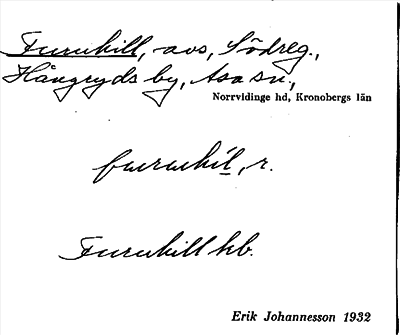 Furuhill, avs, Södreg.,
Hångryds by, Asa sn,
Norrvidinge hd, Kronobergs län
furuhil, r.
Furuhill kb.
Erik Johannesson 1932